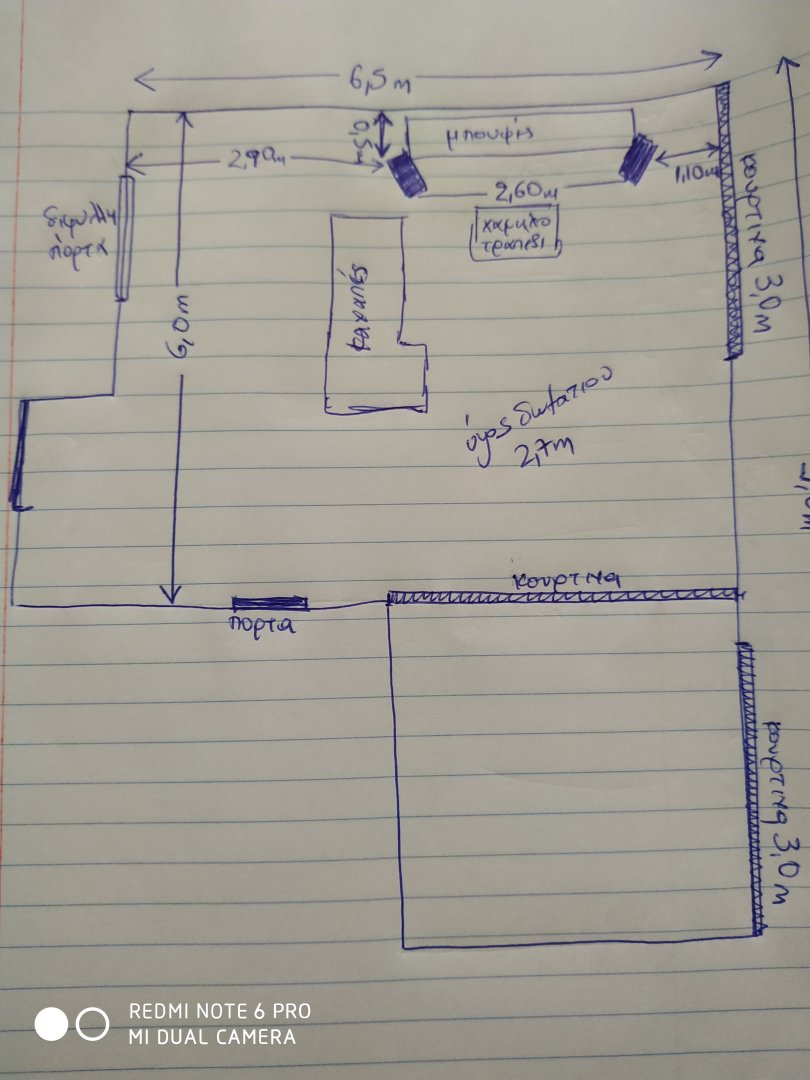 6,5m
0,5m
μπουφές
2,90m
1,10m
2,60m
δίφυλλη
πόρτα
χαμηλό
τραπέζι
κουρτίνα 3,0m
6,0m
καναπές
ύψος δωματίου
2,7m
κουρτίνα
πόρτα
κουρτίνα 3,0m
REDMI NOTE 6 PRO
MI DUAL CAMERA